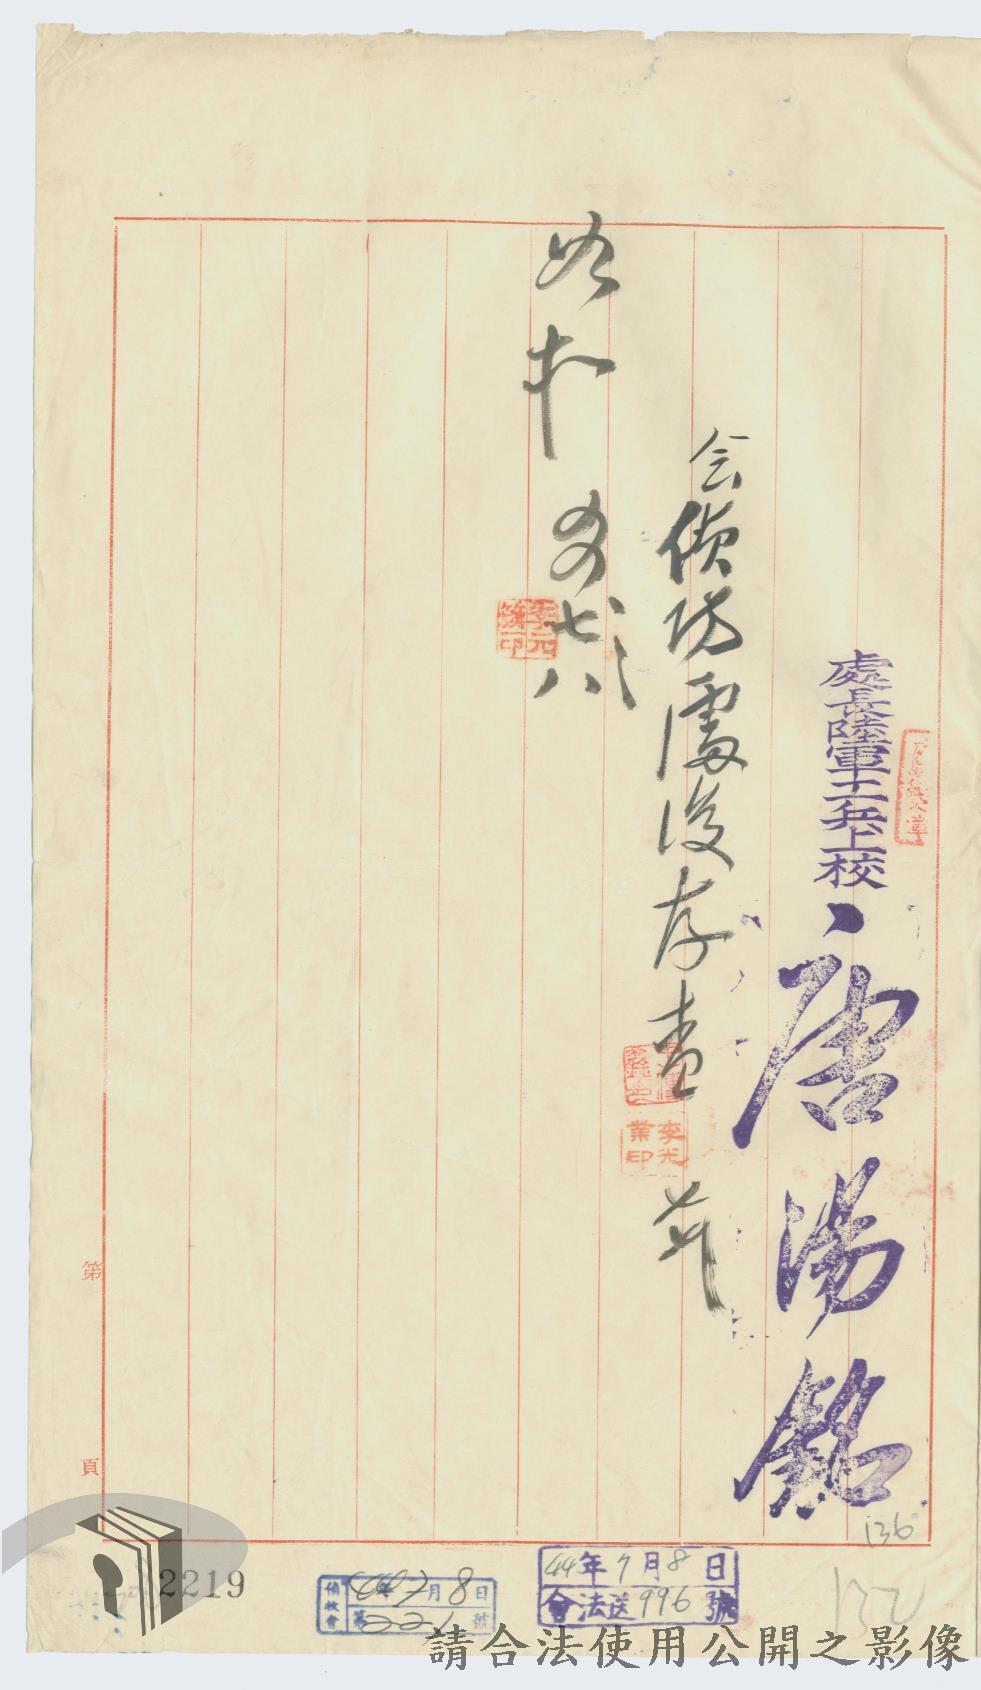 處長陸軍工兵上校
唐湯銘
会偵防處後存查
李光
業印
如擬
七八
第
頁
136
2219
偵收會
7月8日
第 號
44年7月8日
會法送996號
132
請合法使用公開之影像